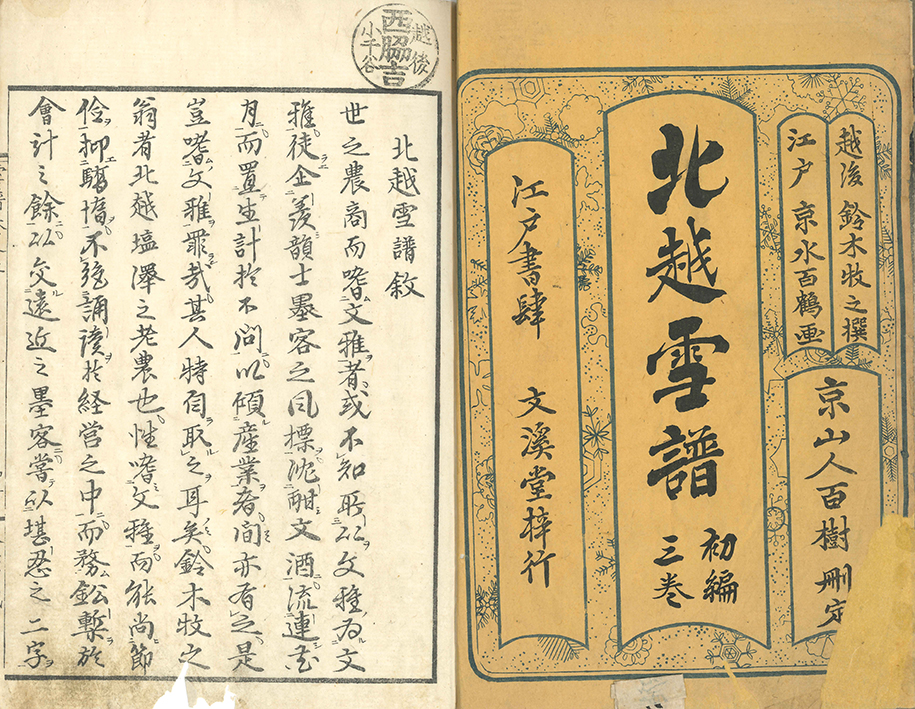 越後 鈴木牧之撰
江戸 京水百鶴画
京山人百樹刪定
北越雪譜
初編
三巻
江戸書肆 文溪堂梓行
越後
西脇吉
小千谷
北越雪譜敘
世之農商而嗜文雅者或不知所以文雅為文
雅徒企羨韻士墨客之風標沈酣文酒流連花
月而置生計於不問以傾産業者間亦有之是
豈嗜文雅罪哉其人特自取之耳矣鈴木牧之
翁者北越塩澤之老農也性嗜文雅而能尚節
儉抑驕惰不絶誦讀於経営之中而務鉛槧於
會計之餘以交遠近之墨客嘗以堪忍之二字